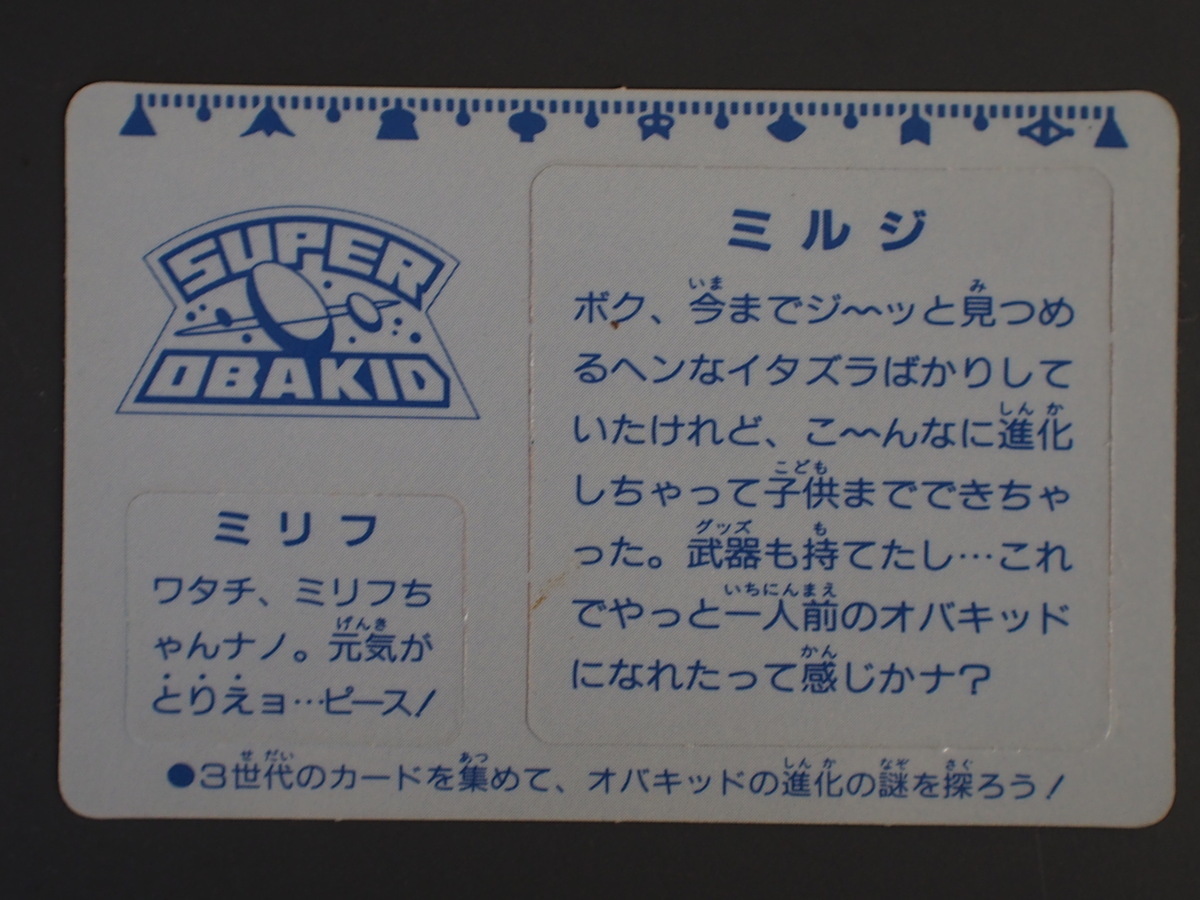 SUPER
OBAKID
ミルジ
ボク、今までジ〜ッと見つめ
るヘンなイタズラばかりして
いたけれど、こ〜んなに進化
しちゃって子供までできちゃ
った。武器も持てたし…これ
でやっと一人前のオバキッド
になれたって感じかナ?
ミリフ
ワタチ、ミリフち
ゃんナノ。元気が
とりえョ…ピース!
●3世代のカードを集めて、オバキッドの進化の謎を探ろう!